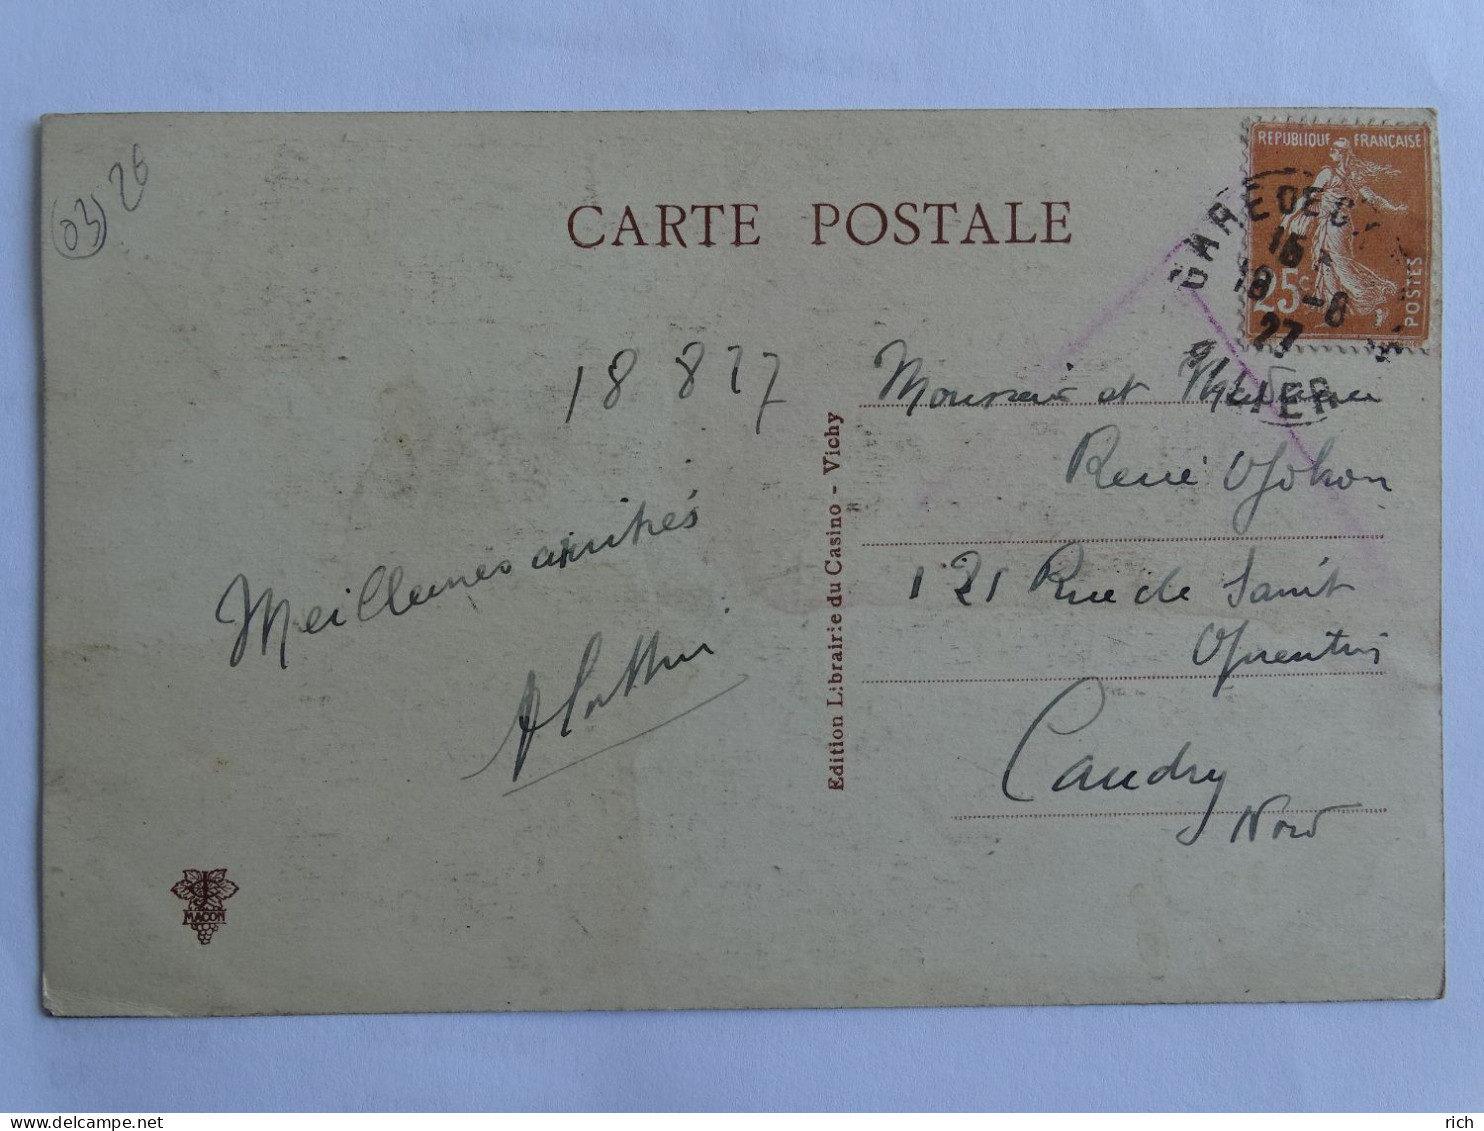 (03) 26
CARTE POSTALE
REPUBLIQUE FRANÇAISE
25c
POSTES
GARE DE
18 -8
27
ALLIER
18 8 27
Monsieur et Madame
René
121 Rue de Saint
Quentin
Caudry
Nord
Meilleures amitiés
Edition Librairie du Casino - Vichy
MACON
rich